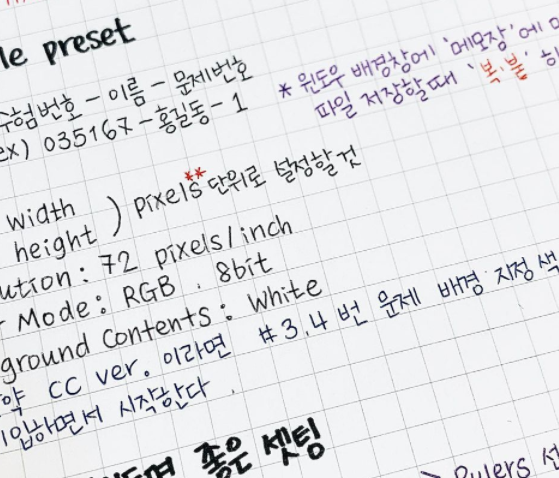 le preset
수험번호 - 이름 - 문제번호
ex) 035167 - 홍길동 - 1
* 윈도우 배경창에 '메모장'에
파일 저장할때 '복·붙'
width
height ) pixels** 단위로 설정할것
ution : 72 pixels/inch
r Mode : RGB . 8bit
ground Contents : White
약 CC ver. 이라면 #3.4번 문제 배경 지정색
입하면서 시작한다.
좋은 셋팅
Rulers